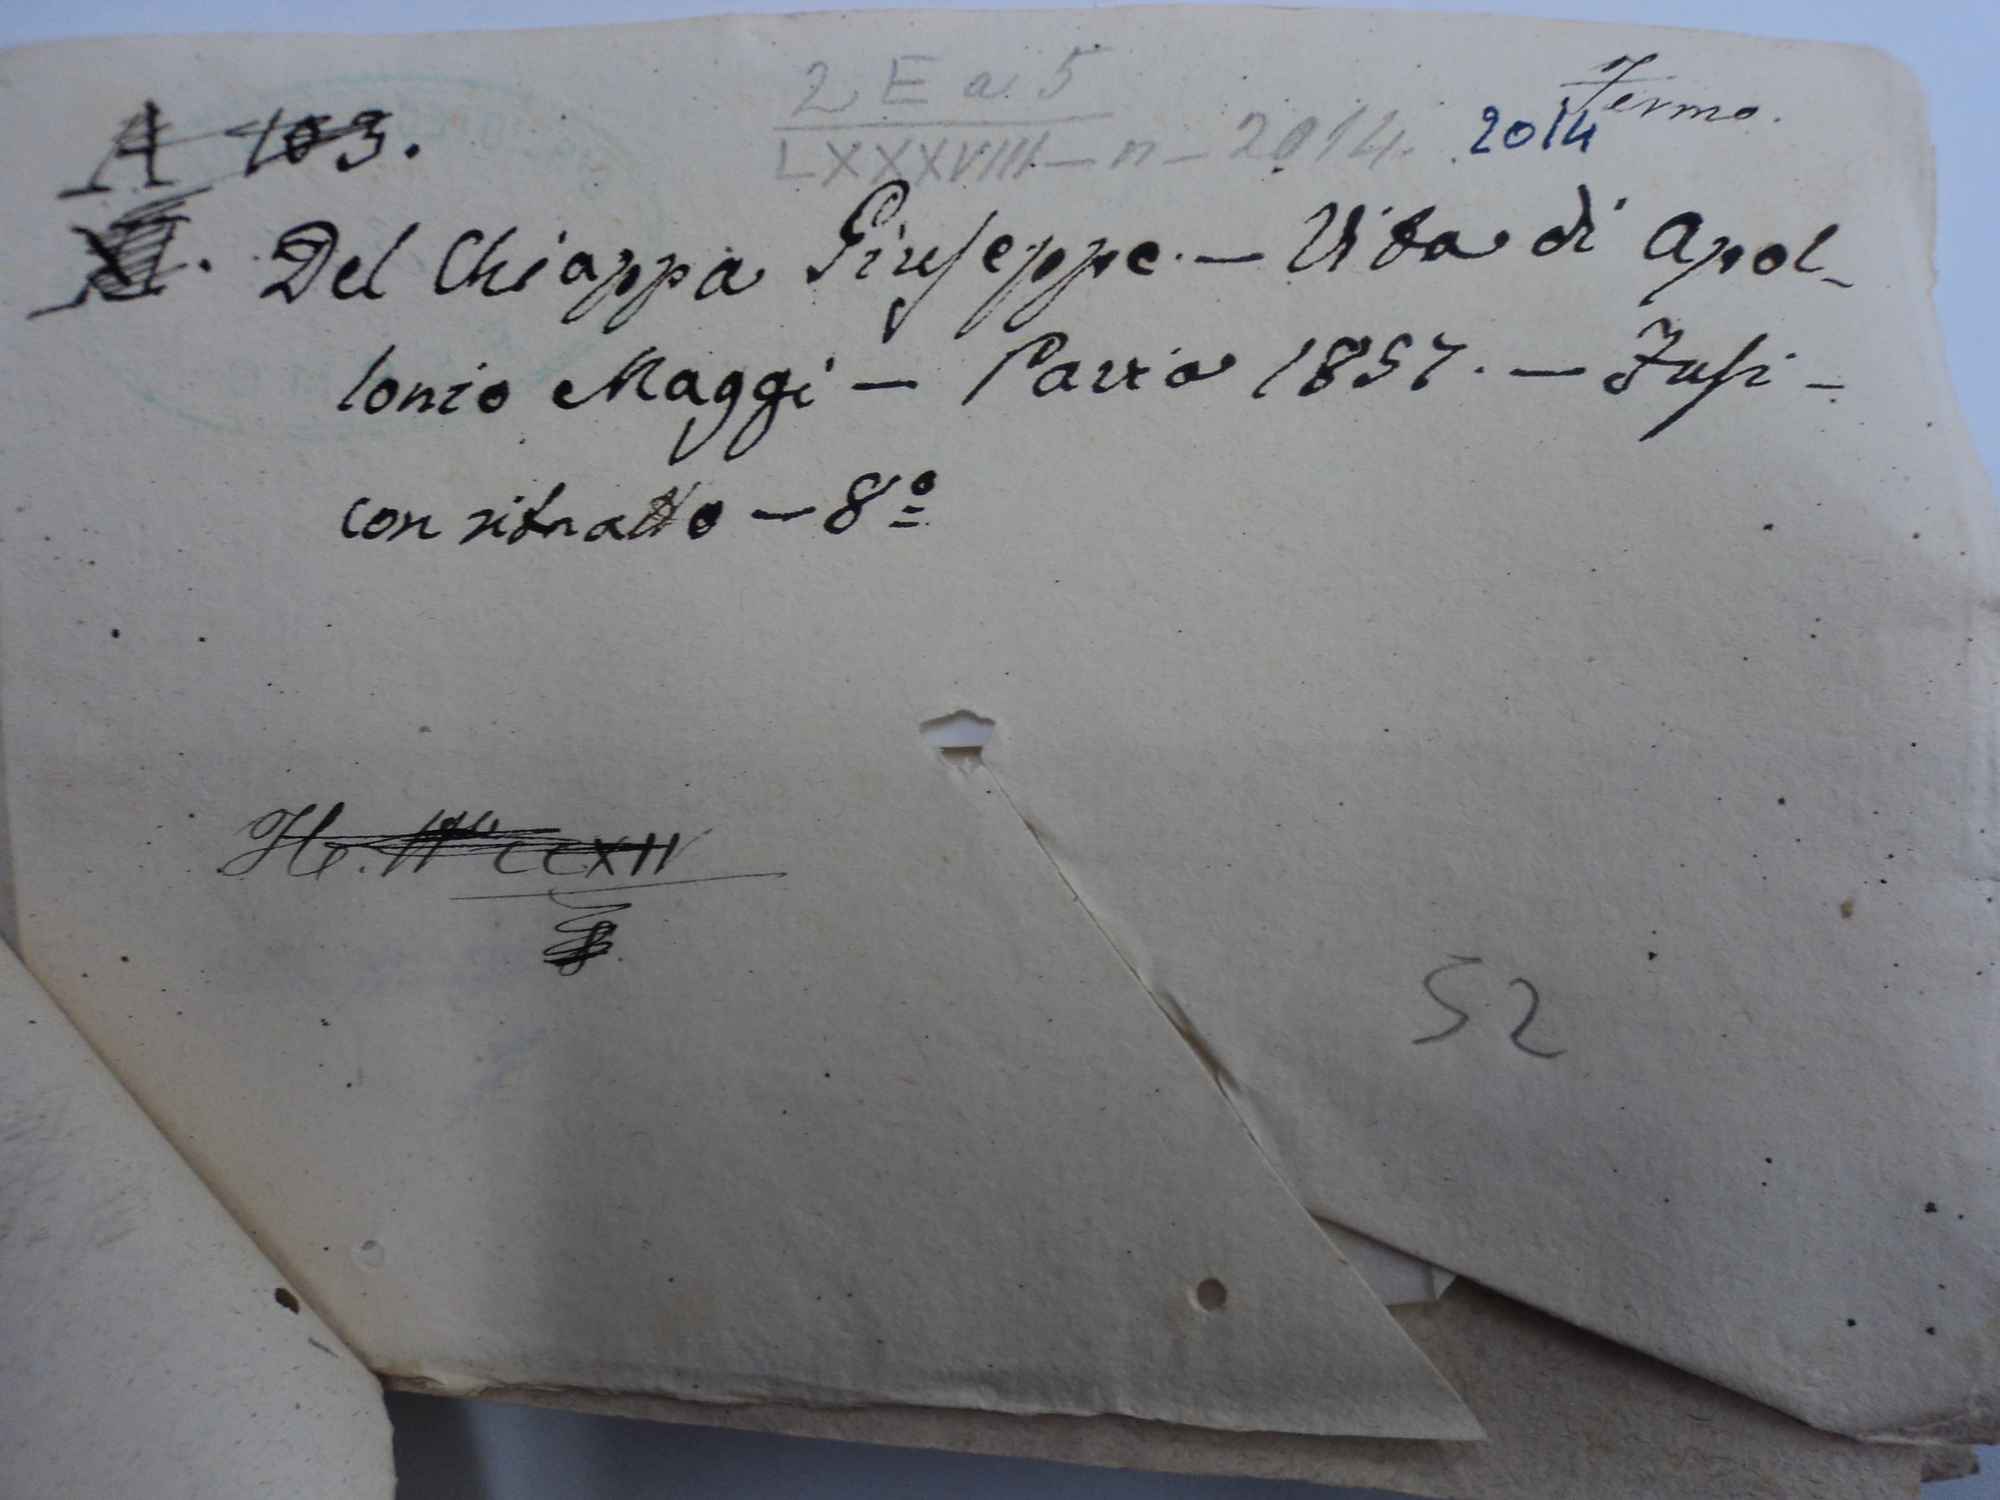 2 E a 5
Fermo.
A 103.
LXXXVIII - n - 2014. 2014
XI. Del Chiappa Giuseppe. - Vita di Apol-
lonio Maggi - Pavia 1857. - Fusi -
con ritratto - 8º
CCXII
52